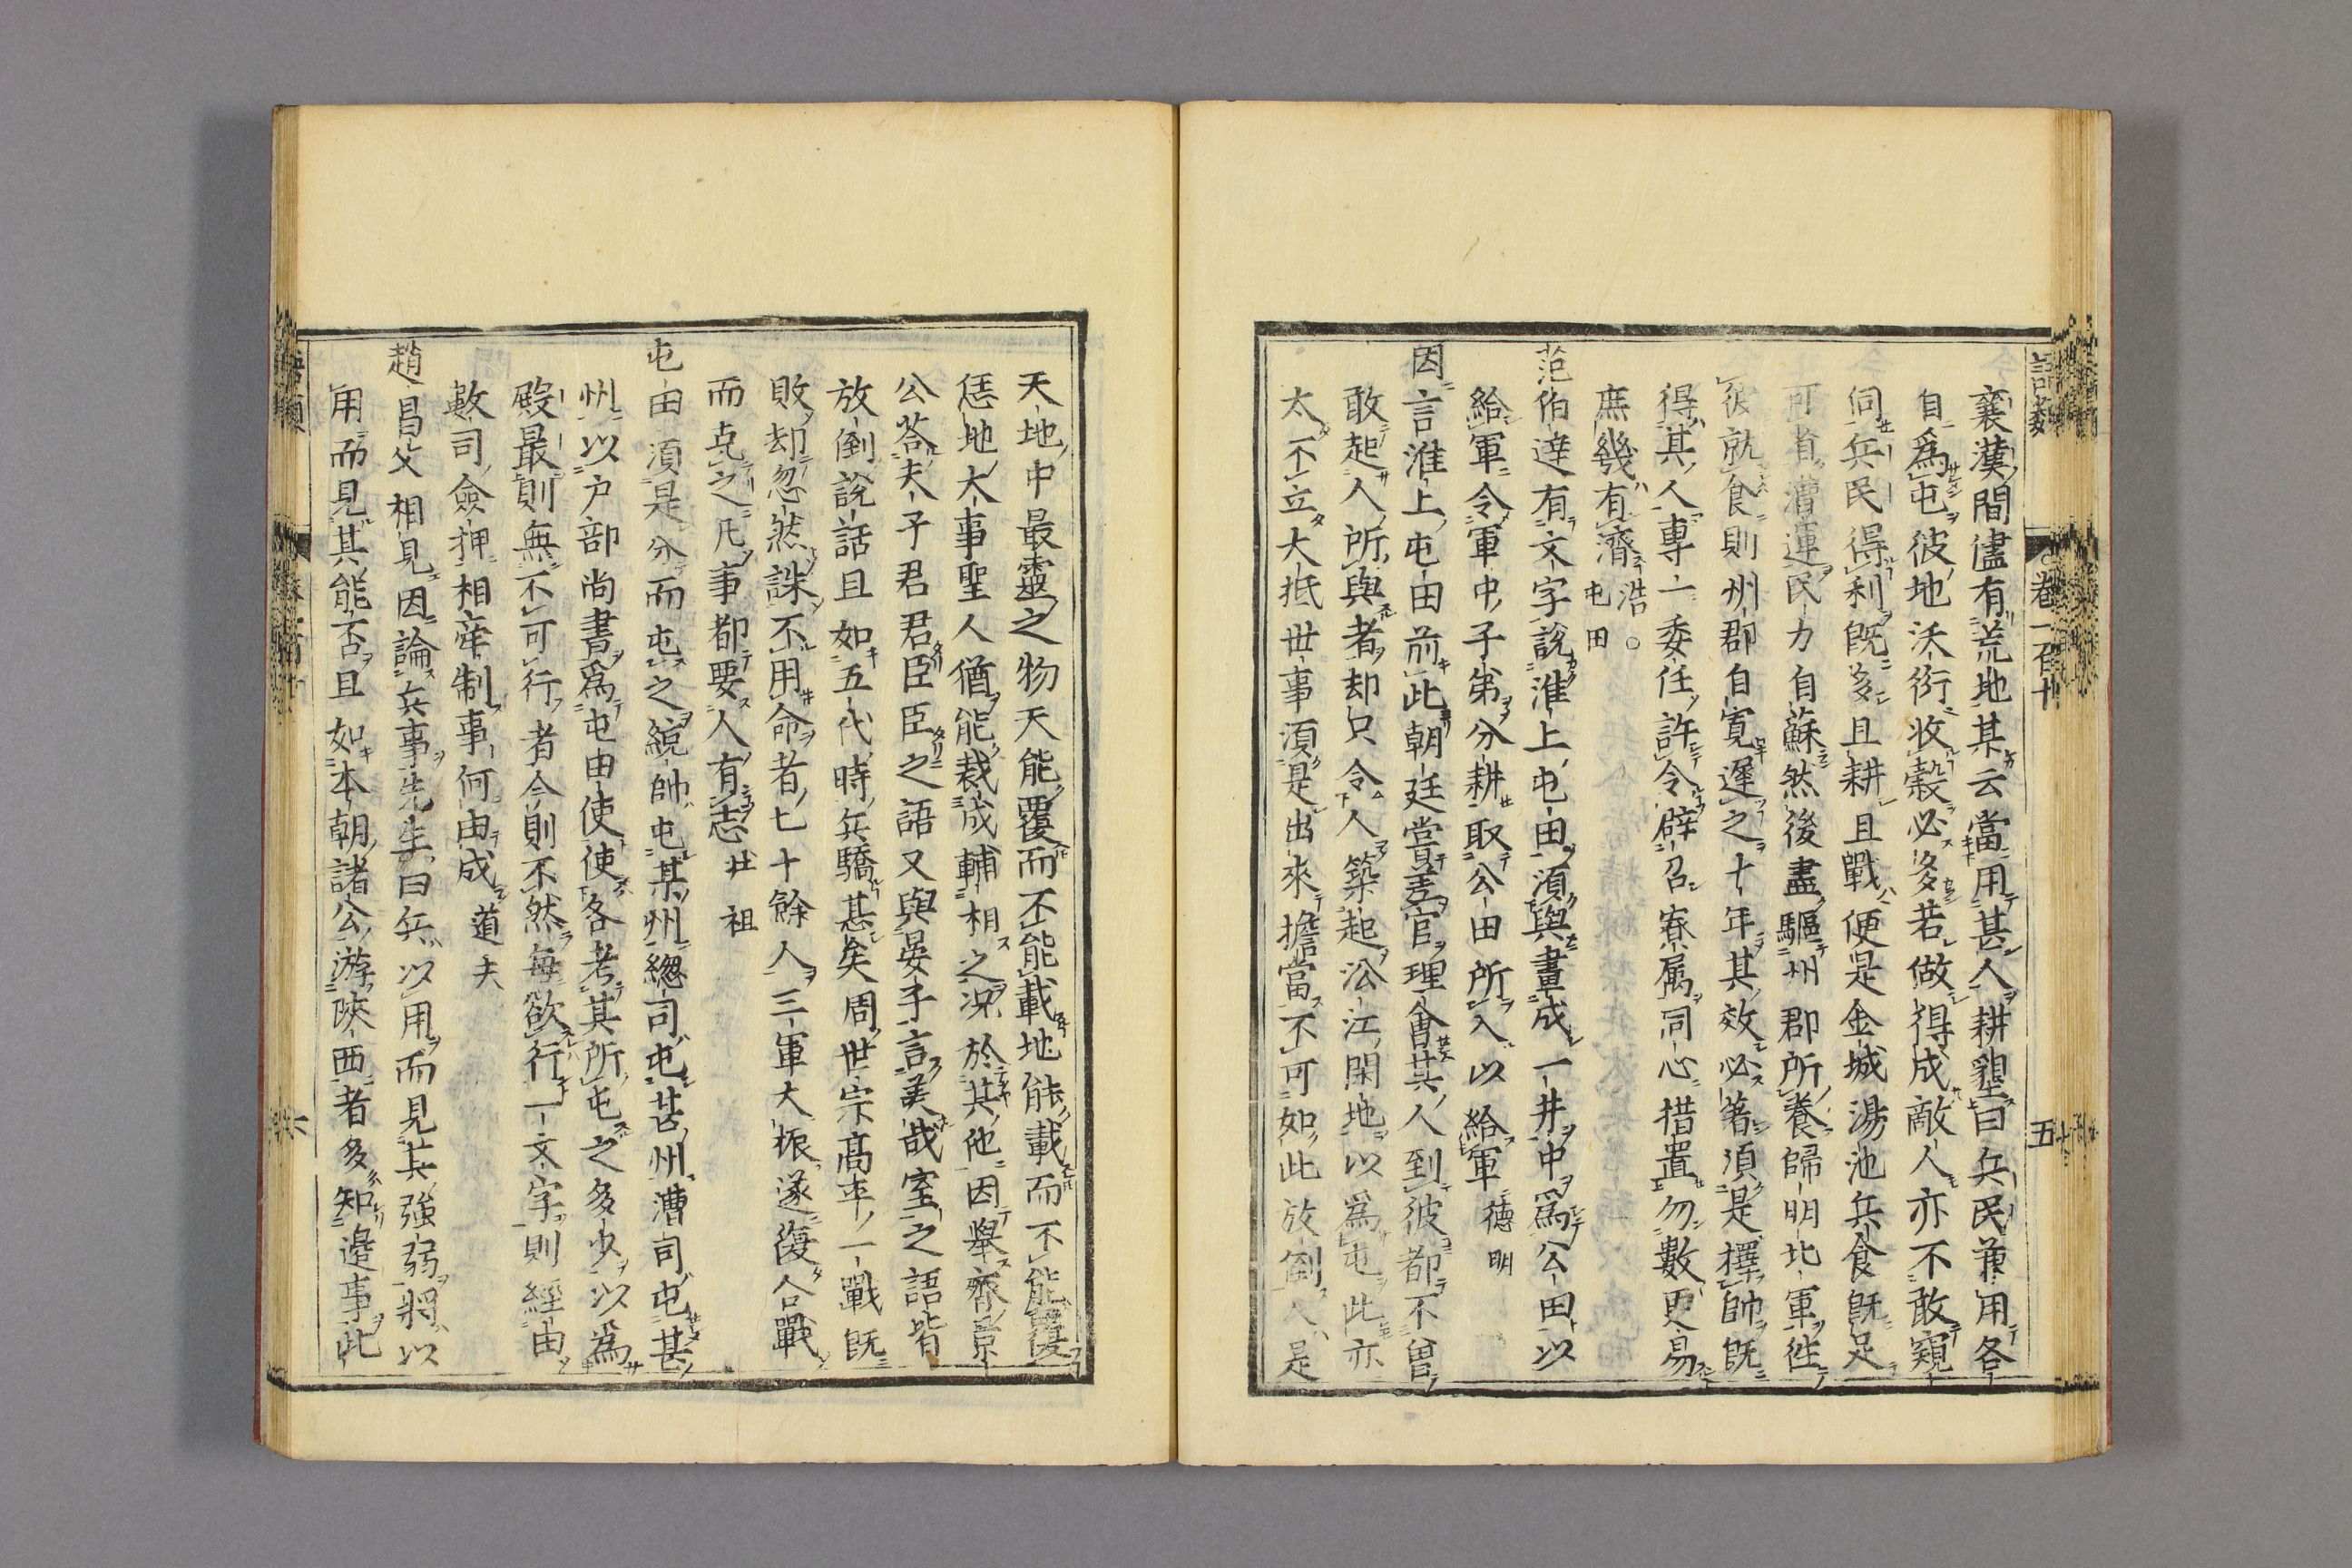 語類
卷一百十
五
襄漢間儘有荒地某云當用甚人耕墾曰兵民兼用各
自爲屯彼地沃衍收穀必多若做得成敵人亦不敢窺
伺兵民得利既多且耕且戰便是金城湯池兵食既足
可省漕運民力自蘇然後盡驅州郡所養歸明北軍徃
彼就食則州郡自寛遲之十年其效必著須是擇帥既
得其人專一委任許令辟召寮属同心措置勿數更易
庶幾有濟 浩○
屯田
范伯達有文字說淮上屯田須與畫成一井中爲公田以
給軍令軍中子弟分耕取公田所入以給軍 德明
因言淮上屯田前此朝廷嘗差官理會其人到彼都不曾
敢起人所與者却只令人築起沿江閑地以爲屯此亦
太不立大抵世事須是出來擔當不可如此放倒人是
天地中最靈之物天能覆而不能載地能載而不能覆
恁地大事聖人猶能裁成輔相之况於其他因舉齊景
公荅夫子君君臣臣之語又與晏子言美哉室之語皆
放倒說話且如五代時兵驕甚矣周世宗高平一戰既
敗却忽然誅不用命者七十餘人三軍大振遂復合戰
而克之凡事都要人有志 壯祖
屯田須是分而屯之統帥屯某州總司屯某州漕司屯甚
州以户部尚書爲屯田使使各考其所屯之多少以爲
殿最則無不可行者今則不然每欲行一文字則經由
數司僉押相牽制事何由成 道夫
趙昌父相見因論兵事先生曰兵以用而見其強弱將以
用而見其能否且如本朝諸公游陝西者多知邊事此